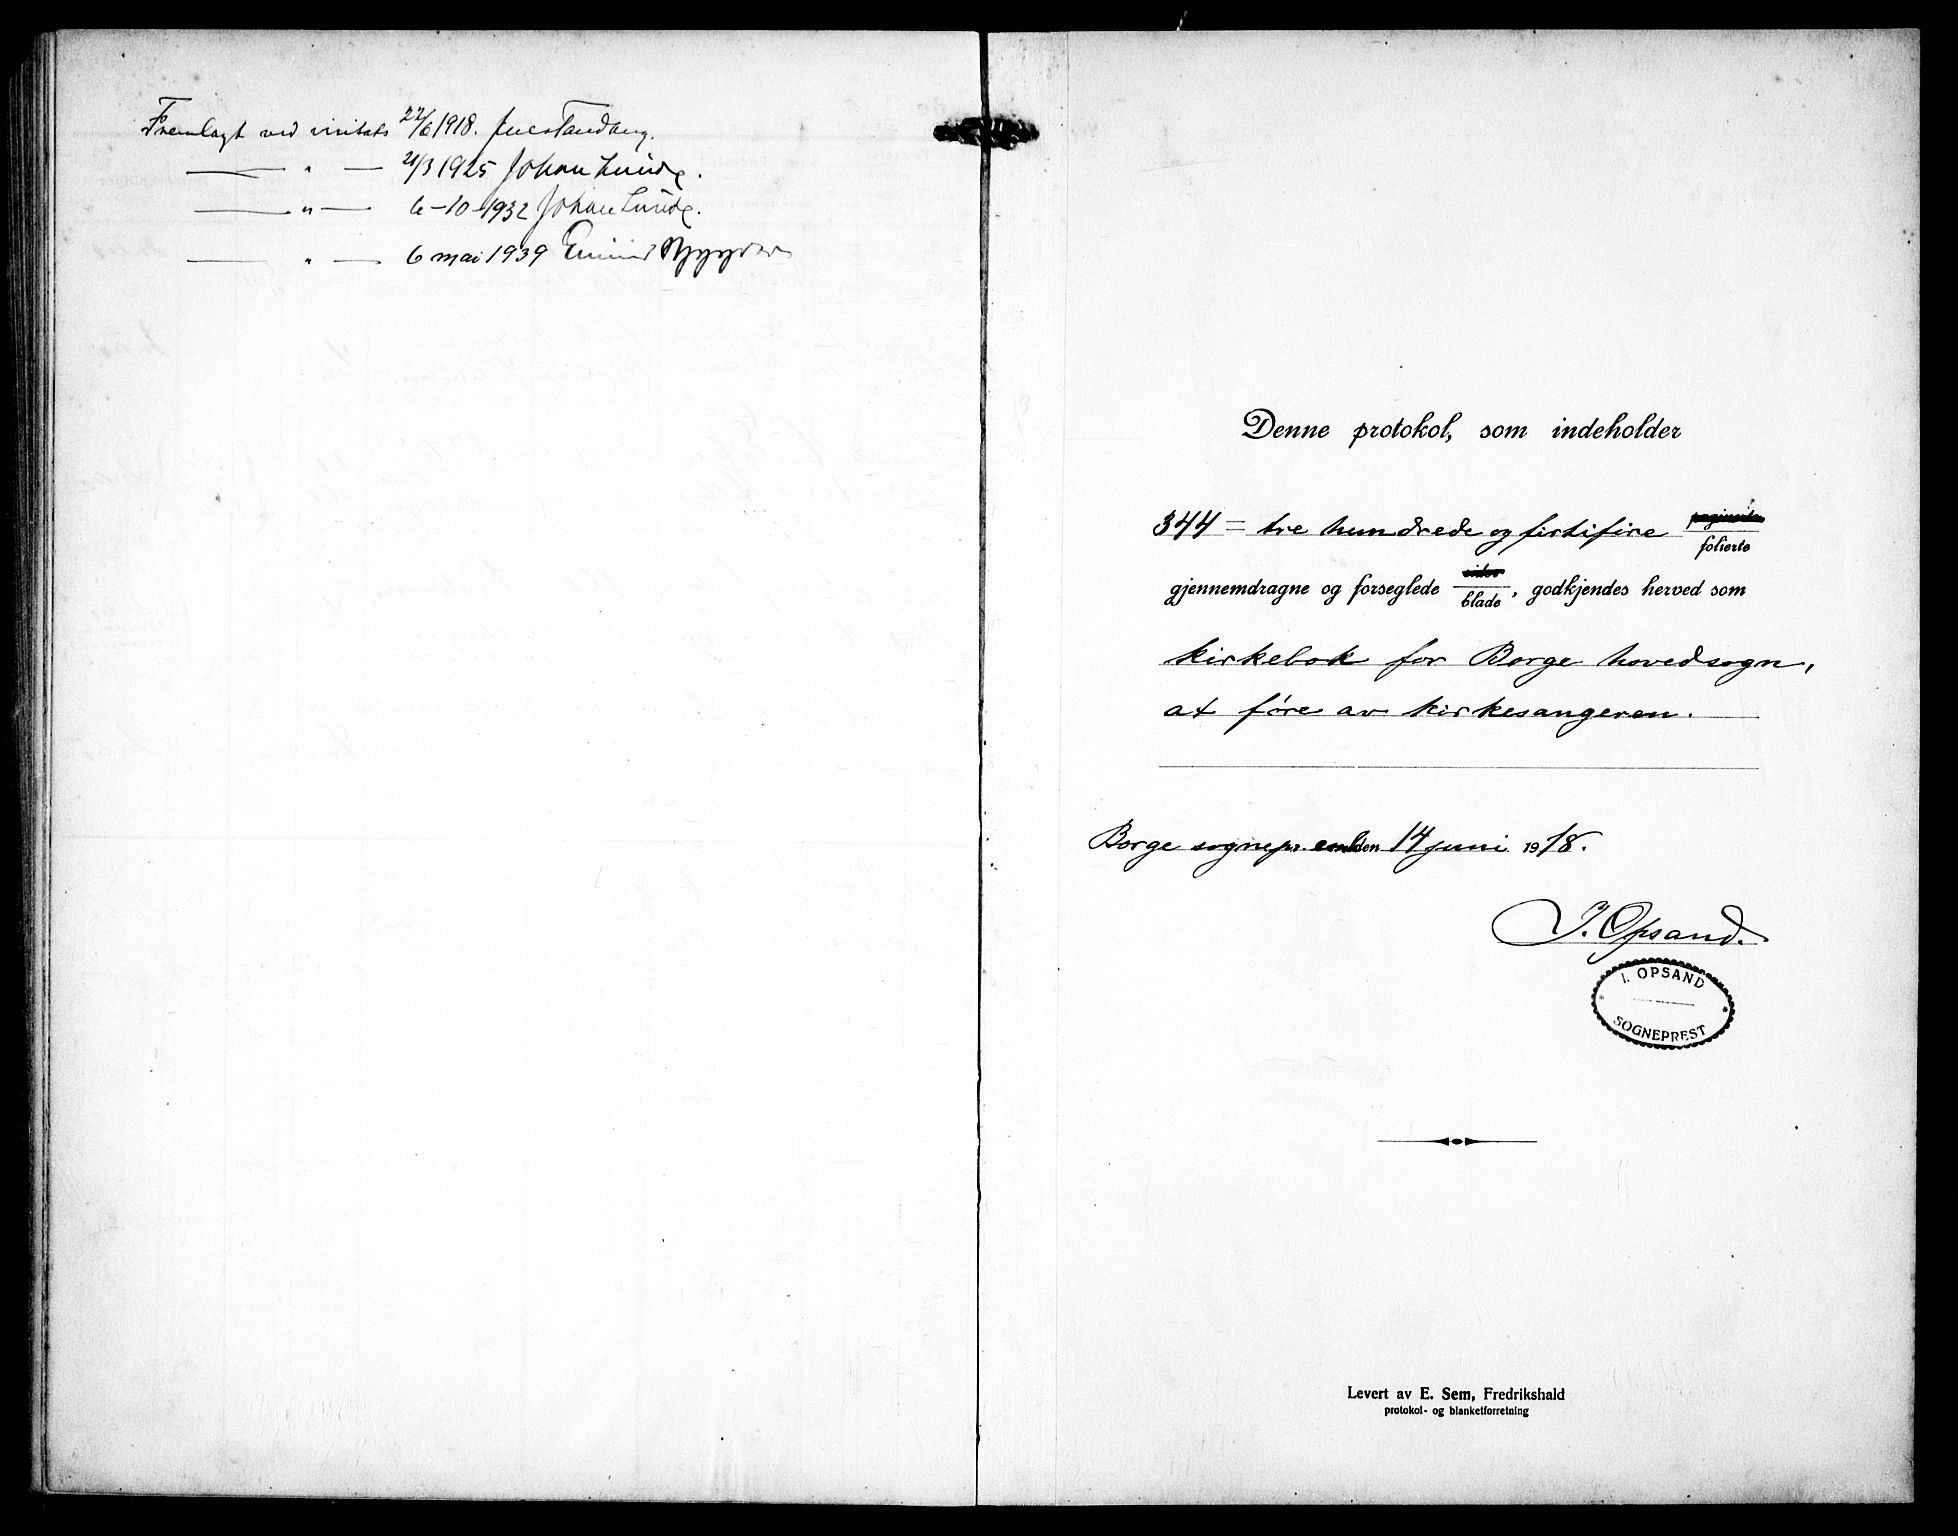 Fremlagt ved visitats 22/6 1918. Jens Tandberg.
— " — 21/3 1925 Johan Lunde.
— " — 6-10-1932 Johan Lunde.
— " — 6 mai 1939
Denne protokol, som indeholder
344 = tre hundrede og firtifire paginerte
folierte
gjennemdragne og forseglede sider
blade, godkjendes herved som
kirkebok for Borge hovedsogn,
at føre av kirkesangeren.
Borge sognepr. emb den 14 juni 1918.
I. Opsand.
I. OPSAND
SOGNEPREST
Levert av E. Sem, Fredrikshald
protokol- og blanketforretning